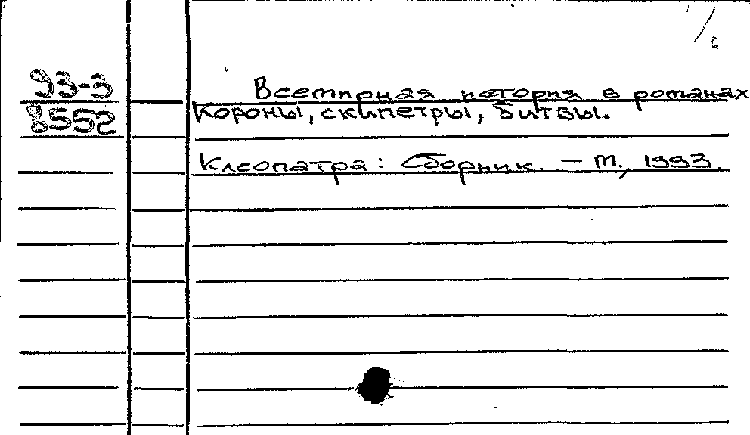 93-3
8552
Всемирная история в романах
Короны, скипетры, битвы.
Клеопатра: Сборник. — М., 1993.